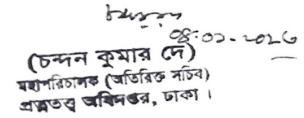 ০৪-০১-২০২৬
(চন্দন কুমার দে)
মহাপরিচালক (অতিরিক্ত সচিব)
প্রত্নতত্ত্ব অধিদপ্তর, ঢাকা।